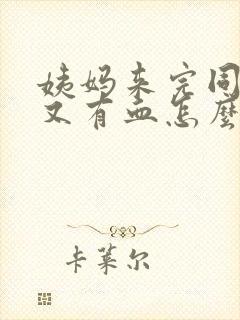 姨妈来完同
又有血怎麼
卡莱尔